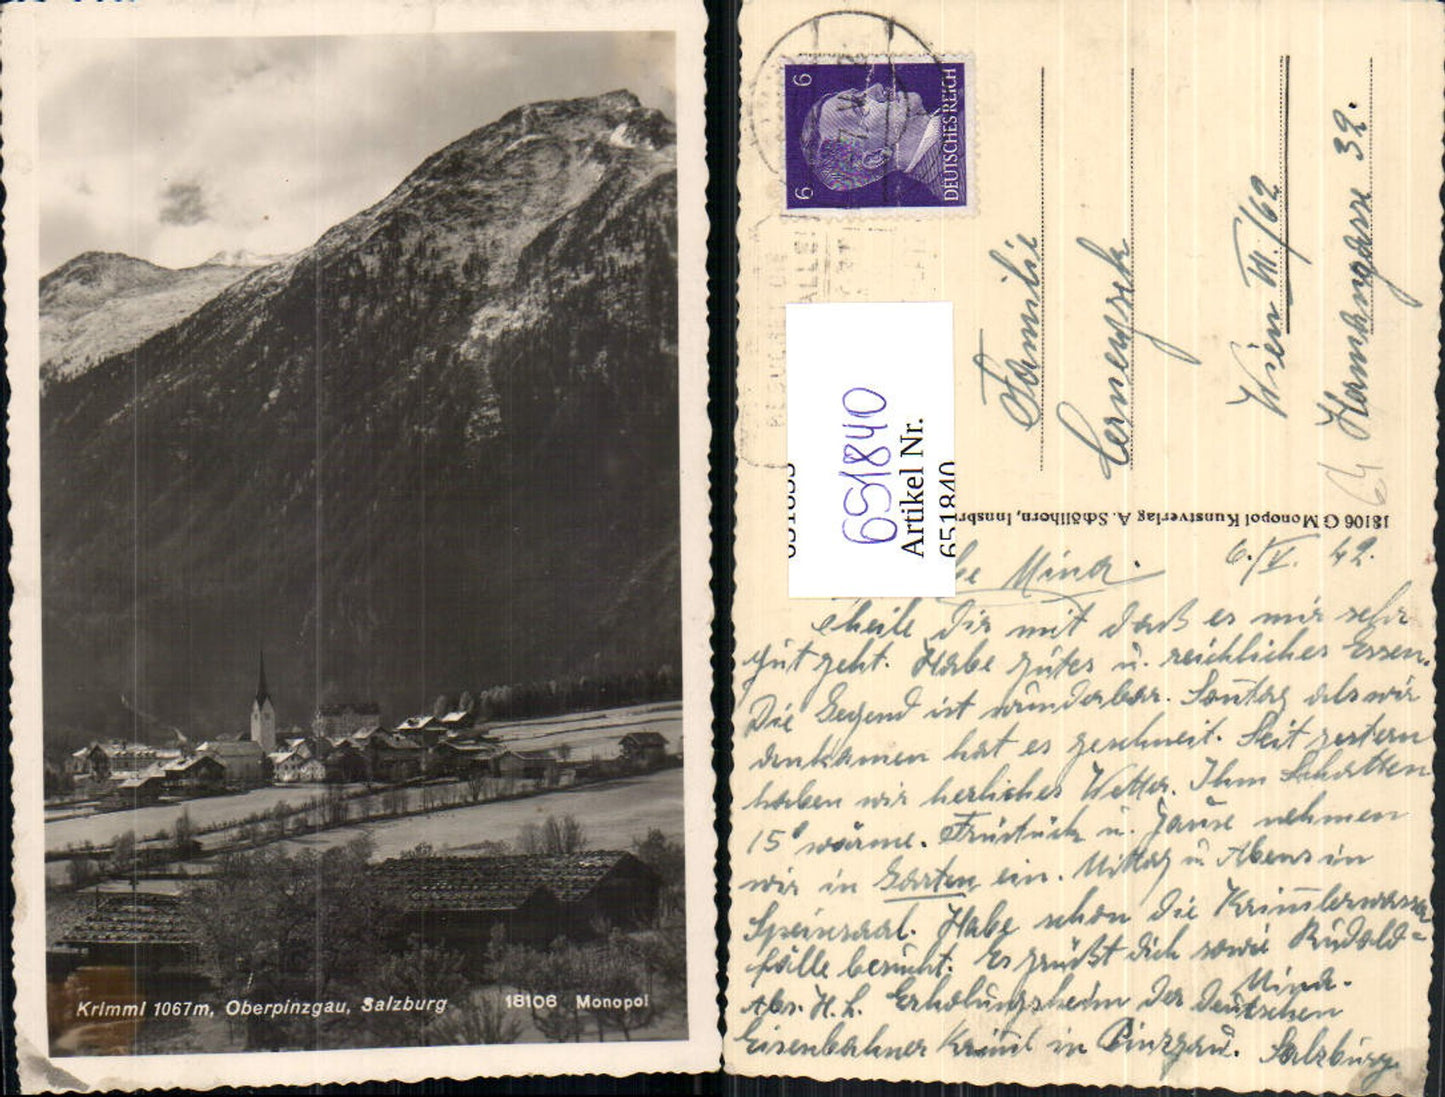 Krimml 1067m, Oberpinzgau, Salzburg
18106 Monopol
6
6
DEUTSCHES REICH
Familie
Wien III./62
Hainburgerstr 32.
64
651840
Artikel Nr.
651840
18106 G Monopol Kunstverlag A. Schöllhorn, Innsbr
Mina.
6./V. 42.
theile Dir mit daß es mir sehr
gut geht. Habe gutes u. reichliches Essen.
Die Gegend ist wunderbar. Sontag als wir
ankamen hat es geschneit. Seit gestern
haben wir herliches Wetter. Ihm Schatten
15° wärme. Früstück u. Jause nehmen
wir in Garten ein. Mittag u Abens in
Speisesaal. Habe schon die Krimmlerwasser
fälle besucht. Es grüßt dich sowie Rudolf
Mina.
Abs. H. L. Erholungsheim der Deutschen
Eisenbahner Kriml in Pinzgau. Salzburg.